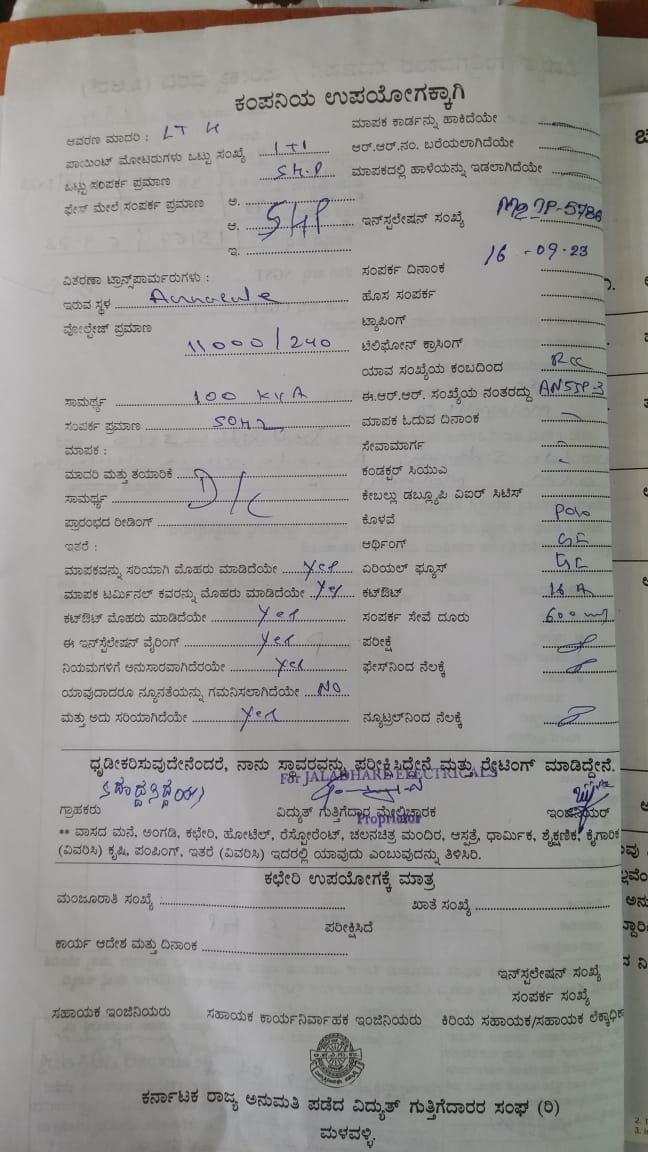 ಕಂಪನಿಯ ಉಪಯೋಗಕ್ಕಾಗಿ
ಆವರಣ ಮಾದರಿ : LT 4
ಮಾಪಕ ಕಾರ್ಡನ್ನು ಹಾಕಿದೆಯೇ
ಪಾಯಿಂಟ್ ಮೋಟರುಗಳು ಒಟ್ಟು ಸಂಖ್ಯೆ 1+1
ಆರ್.ಆರ್.ನಂ. ಬರೆಯಲಾಗಿದೆಯೇ
ಒಟ್ಟು ಸಂಪರ್ಕ ಪ್ರಮಾಣ 5H.P
ಮಾಪಕದಲ್ಲಿ ಹಾಳೆಯನ್ನು ಇಡಲಾಗಿದೆಯೇ
ಫೇಸ್ ಮೇಲೆ ಸಂಪರ್ಕ ಪ್ರಮಾಣ ಆ.
ಆ. 5HP
ಇನ್‌ಸ್ಟಲೇಷನ್ ಸಂಖ್ಯೆ M2IP-5786
ಇ.
16-09-23
ವಿತರಣಾ ಟ್ರಾನ್ಸ್‌ಪಾರ್ಮರುಗಳು :
ಸಂಪರ್ಕ ದಿನಾಂಕ
ಇರುವ ಸ್ಥಳ
ಹೊಸ ಸಂಪರ್ಕ
ವೋಲ್ಟೇಜ್ ಪ್ರಮಾಣ 11000/240
ಟ್ಯಾಪಿಂಗ್
ಟೆಲಿಫೋನ್ ಕ್ರಾಸಿಂಗ್
ಯಾವ ಸಂಖ್ಯೆಯ ಕಂಬದಿಂದ RCC
ಸಾಮರ್ಥ್ಯ 100 KVA
ಈ.ಆರ್.ಆರ್. ಸಂಖ್ಯೆಯ ನಂತರದ್ದು ANSIP-3
ಸಂಪರ್ಕ ಪ್ರಮಾಣ 50HZ
ಮಾಪಕ ಓದುವ ದಿನಾಂಕ
ಮಾಪಕ :
ಸೇವಾಮಾರ್ಗ
ಮಾದರಿ ಮತ್ತು ತಯಾರಿಕೆ D/C
ಕಂಡಕ್ಟರ್ ಸಿಯುಎ
ಸಾಮರ್ಥ್ಯ
ಕೇಬಲ್ಲು ಡಬ್ಲ್ಯೂಪಿ ವಿಐರ್ ಸಿಟಿಸ್
ಪ್ರಾರಂಭದ ರೀಡಿಂಗ್
ಕೊಳವೆ
ಇತರೆ :
ಆರ್ಥಿಂಗ್ GI
ಮಾಪಕವನ್ನು ಸರಿಯಾಗಿ ಮೊಹರು ಮಾಡಿದೆಯೇ Yes
ಏರಿಯಲ್ ಫ್ಯೂಸ್ GI
ಮಾಪಕ ಟರ್ಮಿನಲ್ ಕವರನ್ನು ಮೊಹರು ಮಾಡಿದೆಯೇ Yes
ಕಟ್‌ಔಟ್ 16 A
ಕಟ್‌ಔಟ್ ಮೊಹರು ಮಾಡಿದೆಯೇ Yes
ಸಂಪರ್ಕ ಸೇವೆ ದೂರು 600 m
ಈ ಇನ್‌ಸ್ಟೆಲೇಷನ್ ವೈರಿಂಗ್ Yes
ಪರೀಕ್ಷೆ
ನಿಯಮಗಳಿಗೆ ಅನುಸಾರವಾಗಿದೆರಯೇ Yes
ಫೇಸ್‌ನಿಂದ ನೆಲಕ್ಕೆ
ಯಾವುದಾದರೂ ನ್ಯೂನತೆಯನ್ನು ಗಮನಿಸಲಾಗಿದೆಯೇ NO
ಮತ್ತು ಅದು ಸರಿಯಾಗಿದೆಯೇ Yes
ನ್ಯೂಟ್ರಲ್‌ನಿಂದ ನೆಲಕ್ಕೆ
ಧೃಡೀಕರಿಸುವುದೇನೆಂದರೆ, ನಾನು ಸ್ಥಾವರವನ್ನು ಪರೀಕ್ಷಿಸಿದ್ದೇನೆ ಮತ್ತು ರೇಟಿಂಗ್ ಮಾಡಿದ್ದೇನೆ.
For JALADHARE ELECTRICALS
ಗ್ರಾಹಕರು
ವಿದ್ಯುತ್ ಗುತ್ತಿಗೆದಾರ ಮೇಲ್ವಿಚಾರಕ
ಇಂಜಿನಿಯರ್
Proprietor
** ವಾಸದ ಮನೆ, ಅಂಗಡಿ, ಕಛೇರಿ, ಹೋಟೆಲ್, ರೆಸ್ಟೋರೆಂಟ್, ಚಲನಚಿತ್ರ ಮಂದಿರ, ಆಸ್ಪತ್ರೆ, ಧಾರ್ಮಿಕ, ಶೈಕ್ಷಣಿಕ, ಕೈಗಾರಿಕ
(ವಿವರಿಸಿ) ಕೃಷಿ, ಪಂಪಿಂಗ್, ಇತರೆ (ವಿವರಿಸಿ) ಇದರಲ್ಲಿ ಯಾವುದು ಎಂಬುವುದನ್ನು ತಿಳಿಸಿರಿ.
ಕಛೇರಿ ಉಪಯೋಗಕ್ಕೆ ಮಾತ್ರ
ಮಂಜೂರಾತಿ ಸಂಖ್ಯೆ :
ಖಾತೆ ಸಂಖ್ಯೆ
ಪರೀಕ್ಷಿಸಿದೆ
ಕಾರ್ಯ ಆದೇಶ ಮತ್ತು ದಿನಾಂಕ
ಇನ್‌ಸ್ಟಲೇಷನ್ ಸಂಖ್ಯೆ
ಸಂಪರ್ಕ ಸಂಖ್ಯೆ
ಸಹಾಯಕ ಇಂಜಿನಿಯರು
ಸಹಾಯಕ ಕಾರ್ಯನಿರ್ವಾಹಕ ಇಂಜಿನಿಯರು
ಕಿರಿಯ ಸಹಾಯಕ/ಸಹಾಯಕ
ಕರ್ನಾಟಕ ರಾಜ್ಯ ಅನುಮತಿ ಪಡೆದ ವಿದ್ಯುತ್ ಗುತ್ತಿಗೆದಾರರ ಸಂಘ (ರಿ)
ಮಳವಳ್ಳಿ.